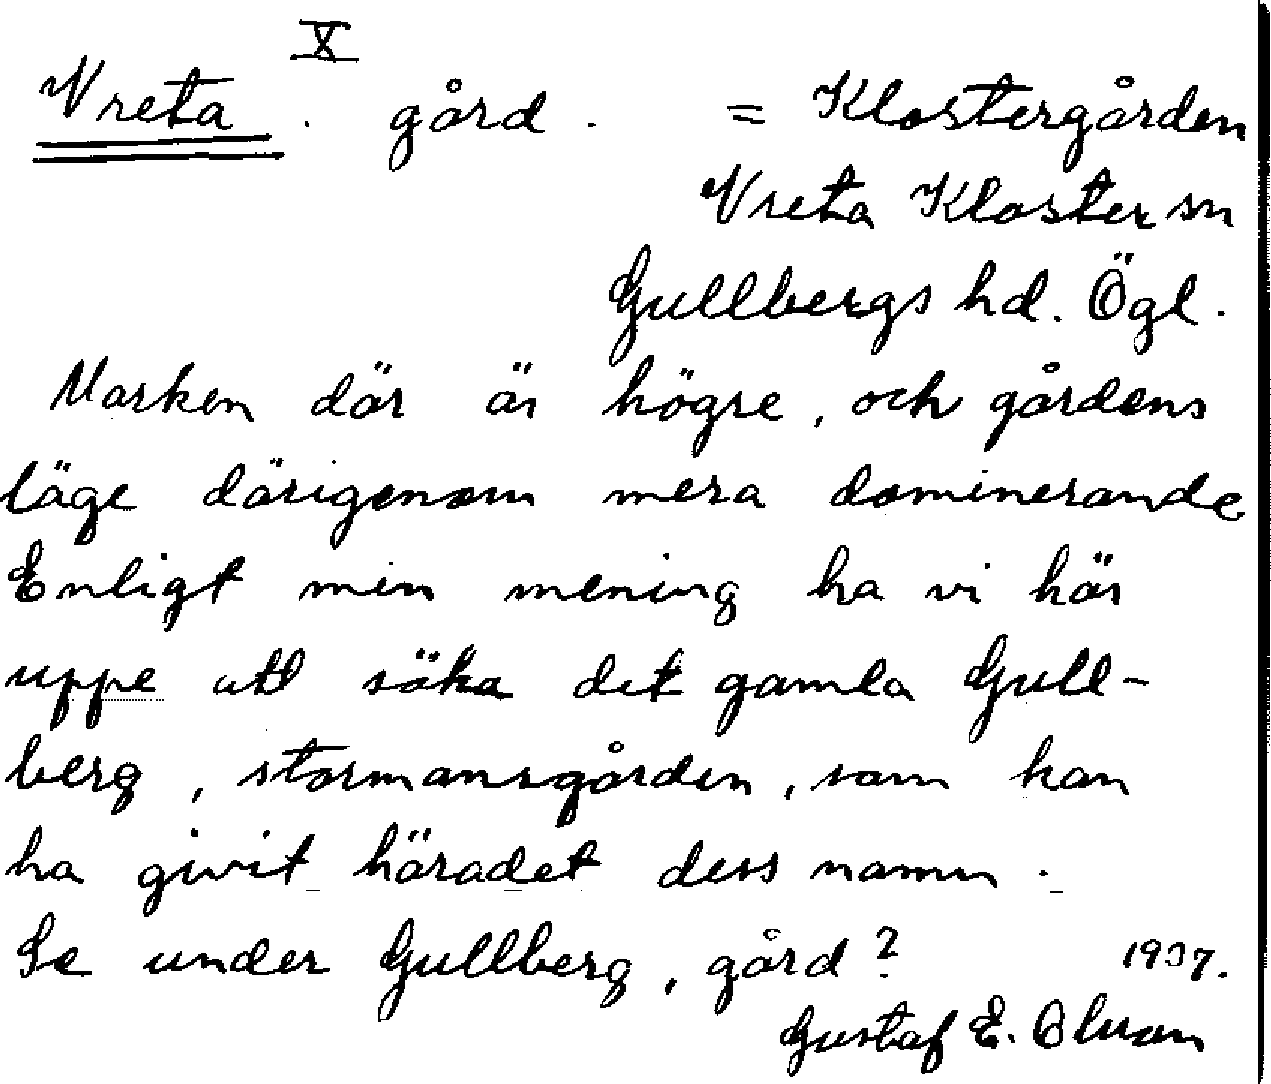 X
Vreta . gård . = Klostergården
Vreta Kloster sn
Gullbergs hd. Ögl.
Marken där är högre, och gårdens
läge därigenom mera dominerande
Enligt min mening ha vi här
uppe att söka det gamla Gull-
berg, stormansgården, som kan
ha givit häradet dess namn.
Se under Gullberg, gård? 1937.
Gustaf E. Olsson